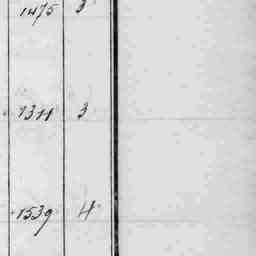 1475 3
1311 3
1539 4